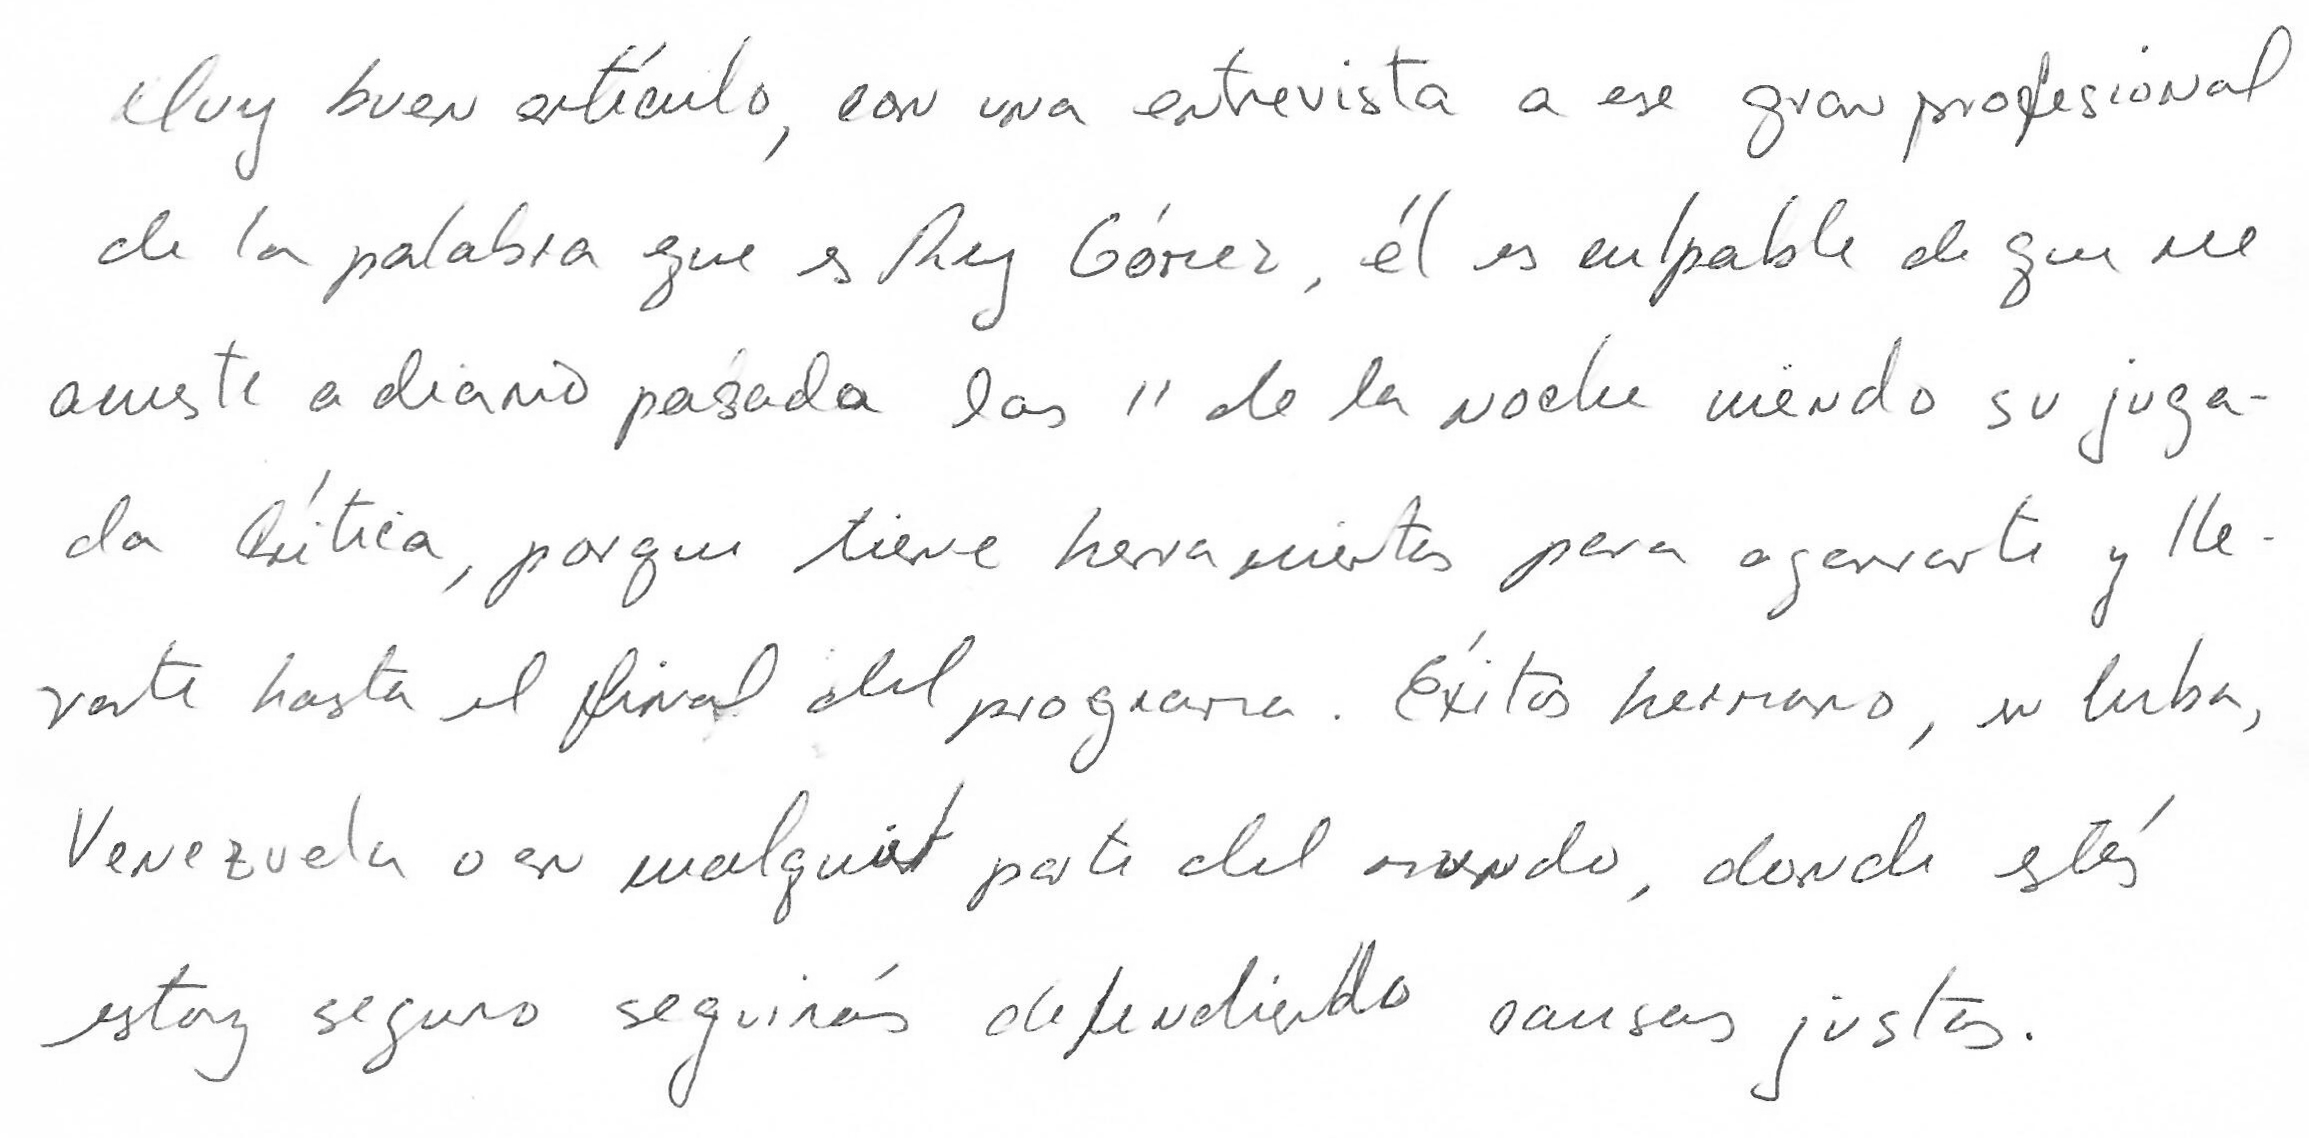 Muy buen artículo, con una entrevista a ese gran profesional
de la palabra que es Rey Gómez, él es culpable de que me
acueste a diario pasada las 11 de la noche viendo su juga-
da Crítica, porque tiene herramientas para agarrarte y lle-
varte hasta el final del programa. Éxitos hermano, en Cuba,
Venezuela o en cualquier parte del mundo, donde estés
estoy seguro seguirás defendiendo causas justas.